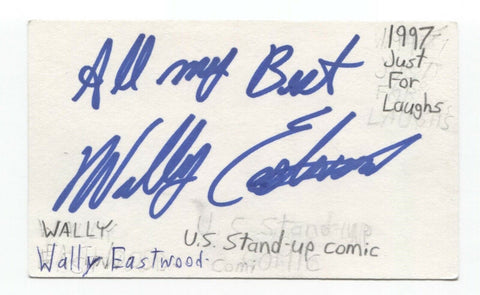 All my Best
Wally Eastwood
1997
Just
For
Laughs
WALLY
Wally Eastwood
U.S. Stand-up comic